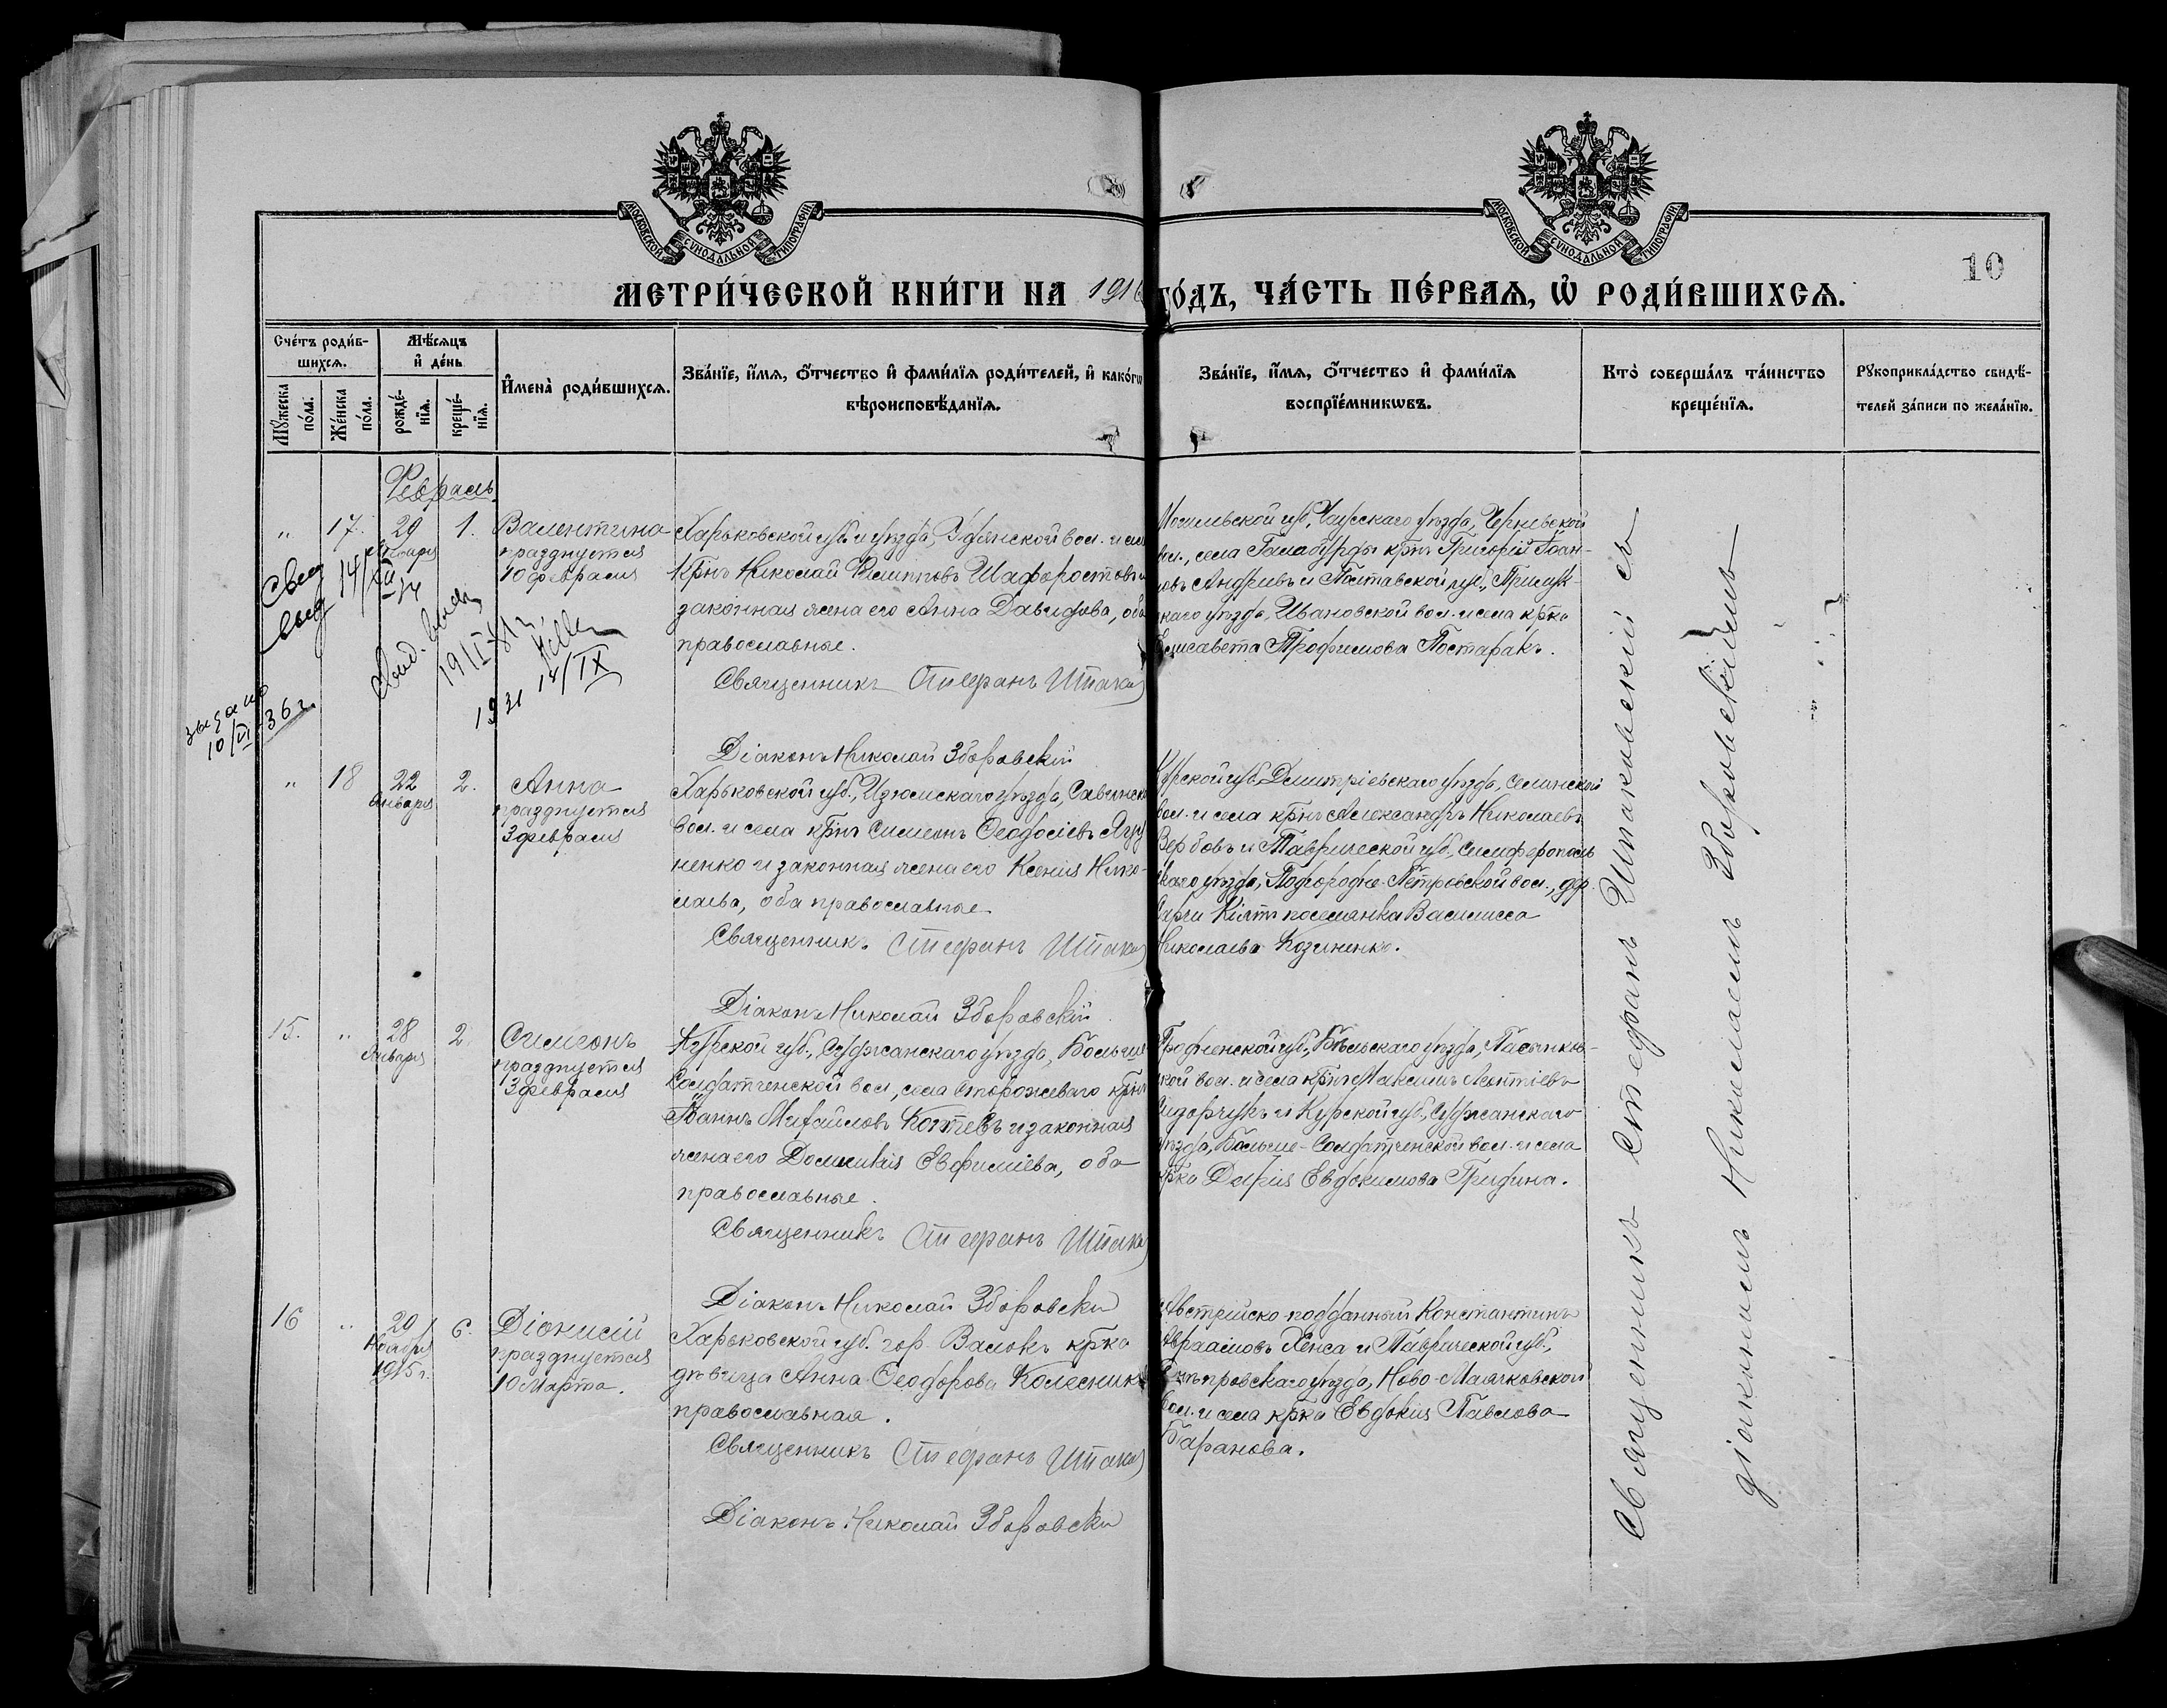 МОСКОВСКОЙ СѴНОДАЛЬНОЙ ТИПОГРАФІИ
МОСКОВСКОЙ СѴНОДАЛЬНОЙ ТИПОГРАФІИ
10
МЕТРИ́ЧЕСКОЙ КНИ́ГИ НА 1916 ГО́ДЪ, ЧА́СТЬ ПЕ́РВАѦ, Ѡ҆ РОДИ́ВШИХСѦ.
Сче́тъ роди́в-
шихсѧ.
Мꙋ́жеска по́ла.
Же́нска по́ла.
Мѣ́сѧцъ
и҆ де́нь
рожде́нїѧ.
креще́нїѧ.
И҆мена̀ роди́вшихсѧ.
Зва́нїе, и҆́мѧ, ѻ҆́тчество и҆ фами́лїѧ роди́телей, и҆ како́гѡ
вѣроисповѣ́данїѧ.
Зва́нїе, и҆́мѧ, ѻ҆́тчество и҆ фами́лїѧ
воспрїе́мникѡвъ.
Кто̀ соверша́лъ та́инство
креще́нїѧ.
Рꙋкоприкла́дство свидѣ́-
телей за́писи по жела́нїю.
Февраль
" 17. 29 января 1. Валентина
празднуется
10 февраля
Харьковской губ. и уѣзда, вол. и
крнъ Николай Филипповъ Шафоростовъ и
законная жена его Анна Давидова, оба
православные.
Священникъ Стефанъ Штака
Діаконъ Николай Зборовскій
Могилевской губ., Чаусскаго уѣзда, Черневской
вол., села Галабурды крнъ Григорій Іоан-
новъ Андреевъ и Полтавской губ., Прилук-
скаго уѣзда, Ивановской вол. и села крка
Елисавета Трофимова Костаракъ.
Свид
выд 14/XII
Свид. выд.
19/I
1931 14/IX
10/VI 36 г.
" 18 22 января 2. Анна
празднуется
3 февраля
Харьковской губ., Изюмскаго уѣзда, Савинск
вол. и села крнъ Симеонъ Ѳеодосіевъ Ягу
ненко и законная жена его Ксенія Нико-
лаева, оба православные
Священникъ Стефанъ Штака
Діаконъ Николай Зборовскій
Курской губ., Дмитріевскаго уѣзда, Селинской
вол. и села крнъ Александръ Николаевъ
Вербовъ и Таврической губ., Симферополь
скаго уѣзда, Подгородне-Петровской вол., дер.
Кіятъ поселянка Василисса
Николаева Козиненко.
15. " 28 января 2. Симеонъ
празднуется
3 февраля
Курской губ., Суджанскаго уѣзда, Больше
Солдатченской вол., села Сторожеваго крнъ
Іоаннъ Михайловъ Коптевъ и законная
жена его Домникія Евфиміева, оба
православные.
Священникъ Стефанъ Штака
Діаконъ Николай Зборовски
Гродненской губ., Бѣльскаго уѣзда, Пасынков-
ской вол. и села крнъ Максимъ Леонтіевъ
Сидорчукъ и Курской губ., Суджанскаго
уѣзда, Больше-Солдатченской вол. и села
крка Дарія Евдокимова Гридина.
16 " 29 Ноября 1915 г. 6. Діонисій
празднуется
10 Марта.
Харьковской губ. гор. Валокъ крка
дѣвица Анна Ѳеодорова Колесник
православная.
Священникъ Стефанъ Штака
Діаконъ Николай Зборовски
Австрійско-подданный Константинъ
Авраамовъ Хенса и Таврической губ.,
Днѣпровскаго уѣзда, Ново-Маячковской
вол. и села крка Евдокія Павлова
Баранова.
Священникъ Стефанъ Штаковскій съ
діакономъ Николаемъ Зборовскимъ